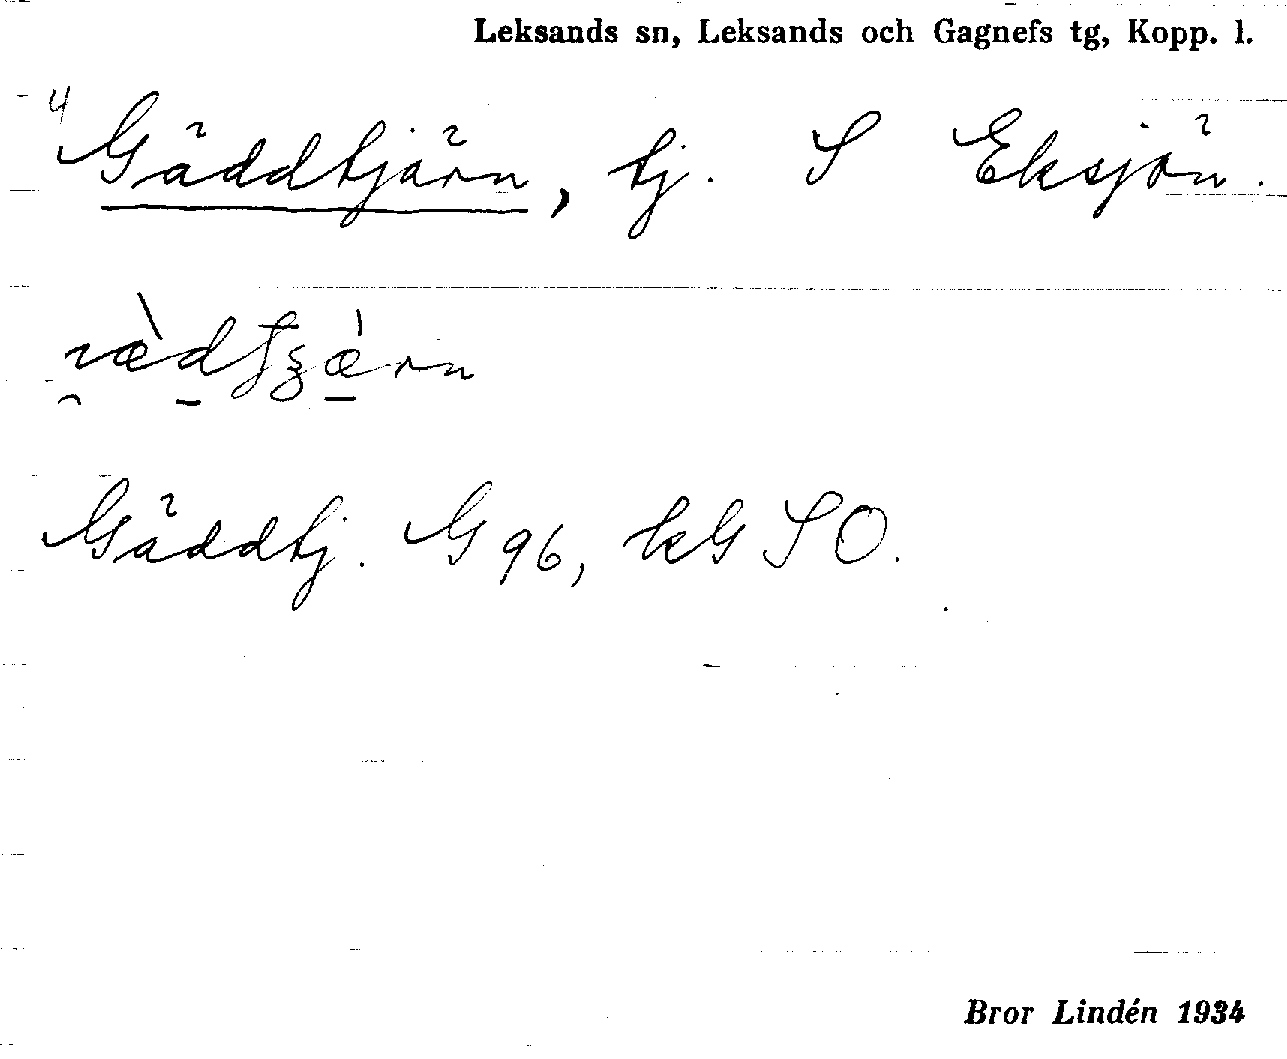 Leksands sn, Leksands och Gagnefs tg, Kopp. l.
4
Gäddtjärn, tj. S Eksjön.
Gäddtj. G 96, kG SO.
Bror Lindén 1934